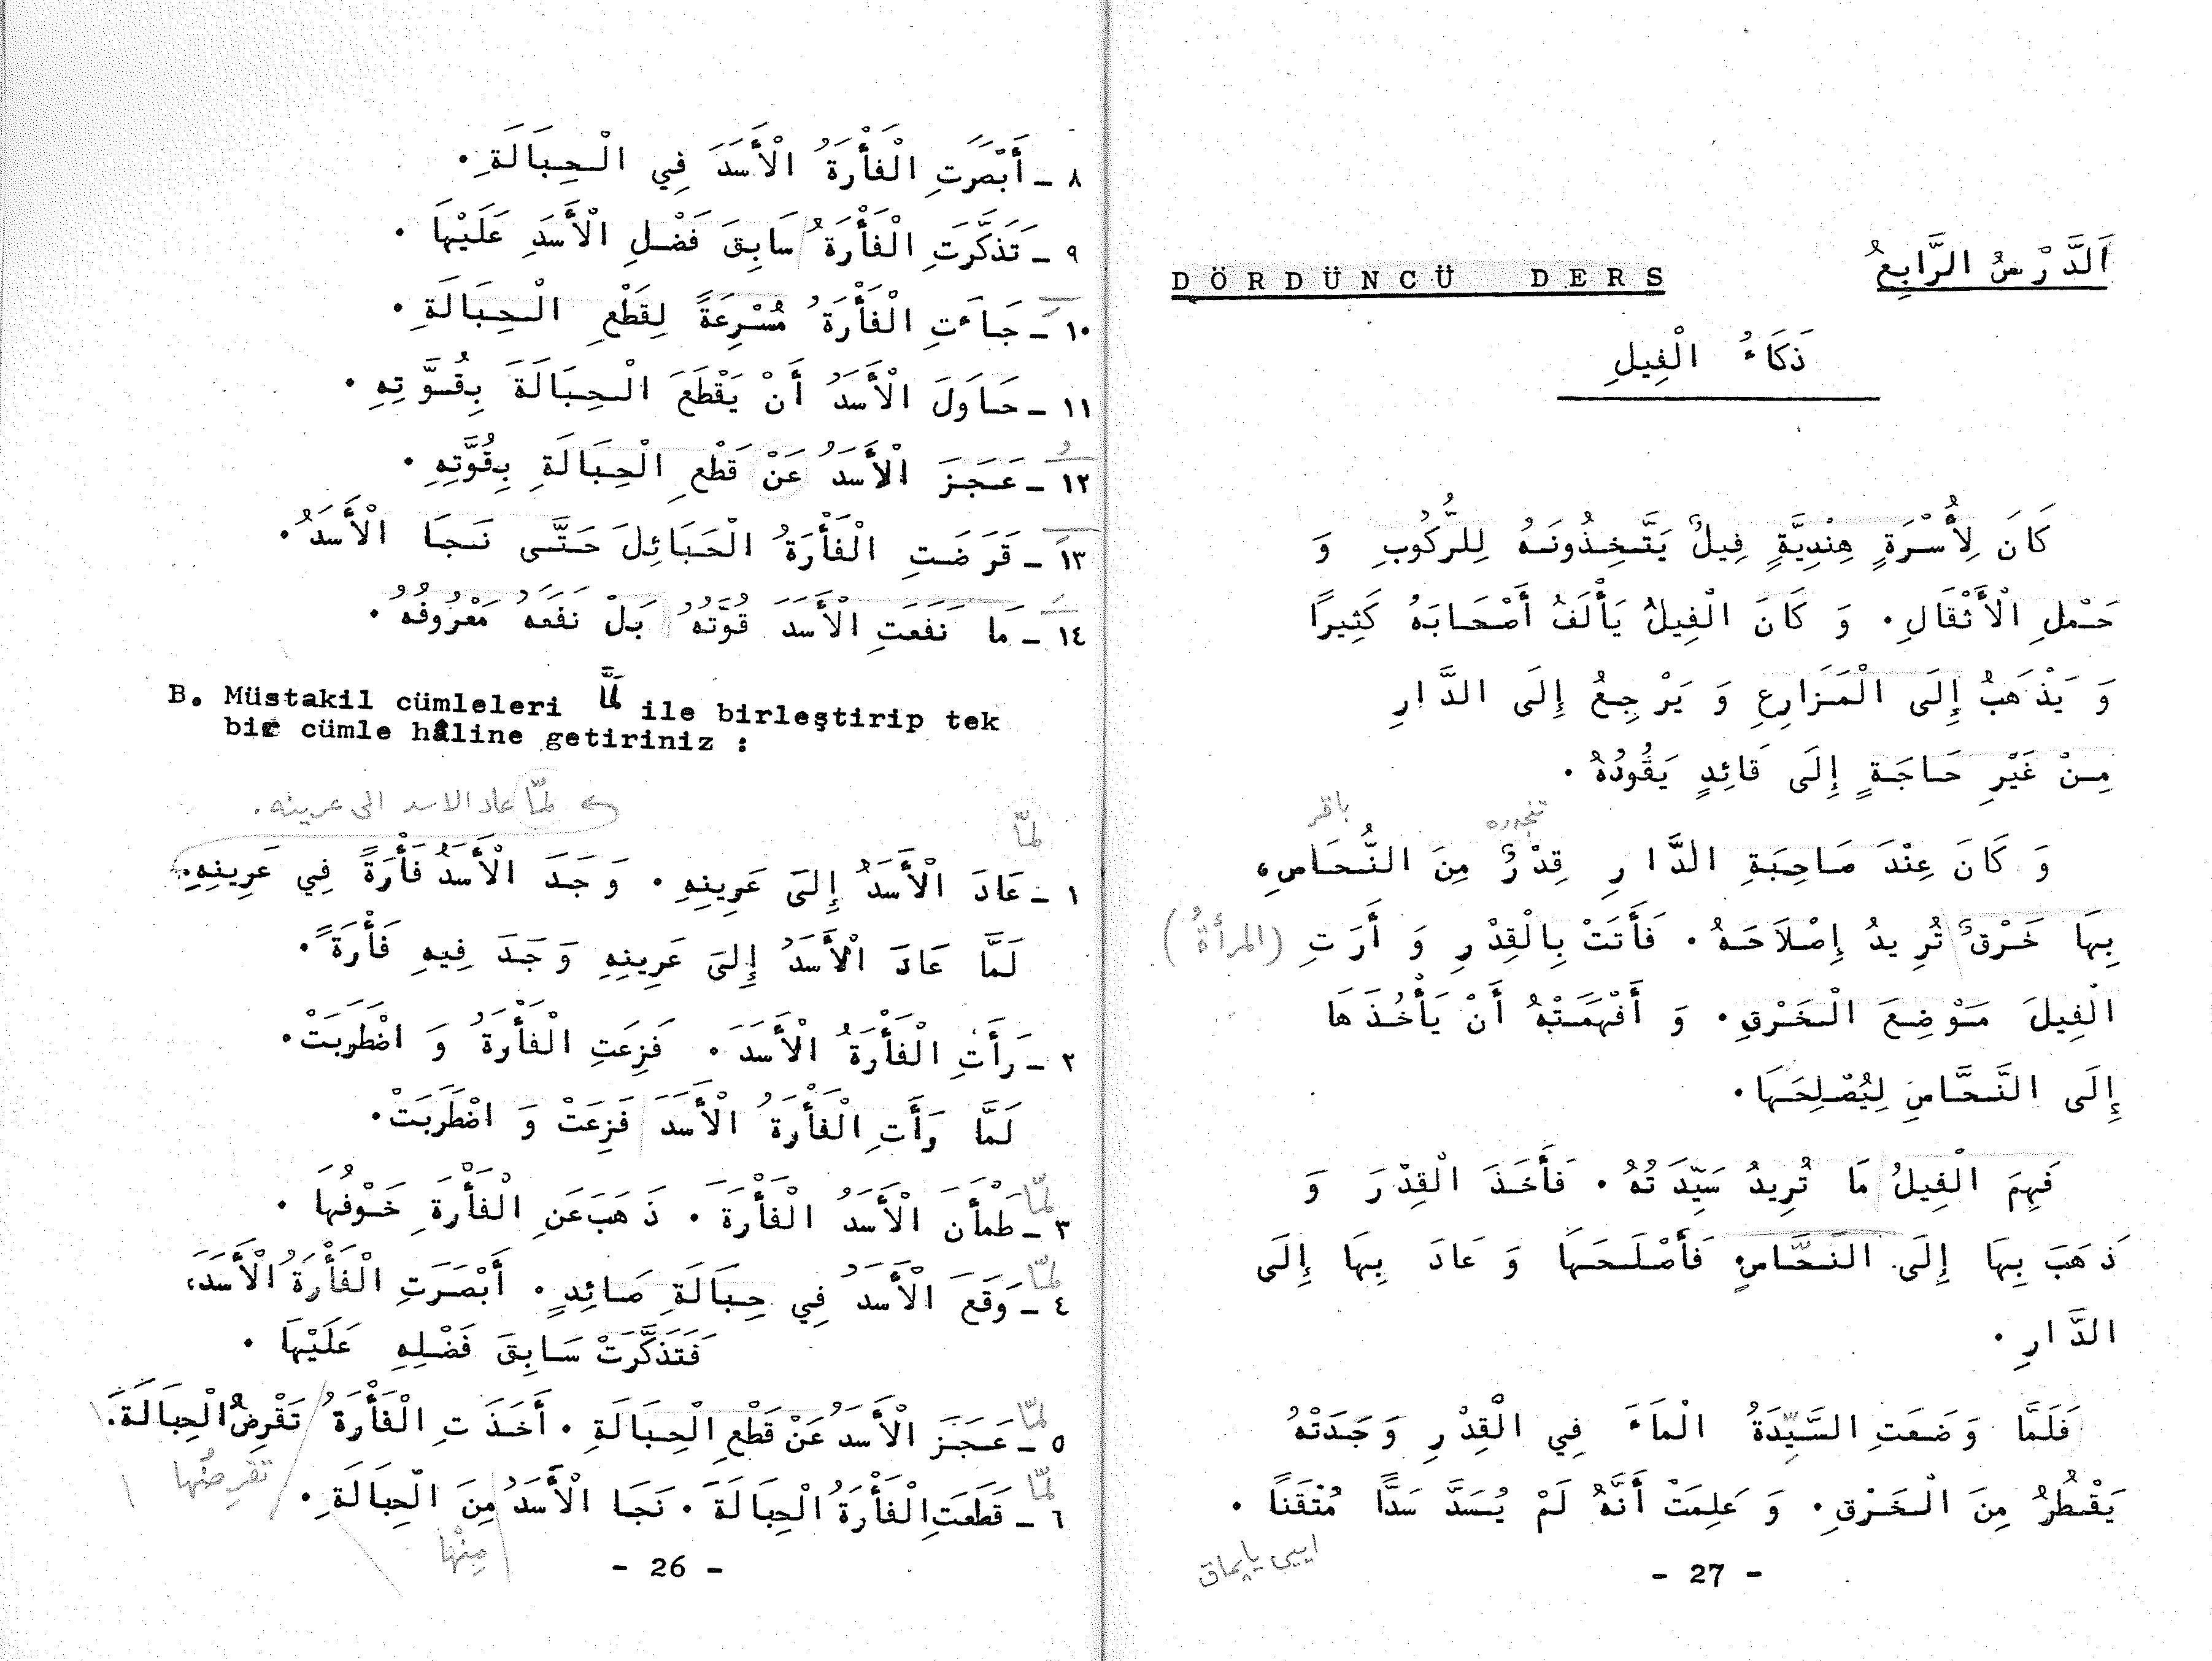 ٨ ـ أَبْصَرَتِ الْفَأْرَةُ الْأَسَدَ فِي الْحِبَالَةِ .
٩ ـ تَذَكَّرَتِ الْفَأْرَةُ سَابِقَ فَضْلِ الْأَسَدِ عَلَيْهَا .
١٠ ـ جَاءَتِ الْفَأْرَةُ مُسْرِعَةً لِقَطْعِ الْحِبَالَةِ .
١١ ـ حَاوَلَ الْأَسَدُ أَنْ يَقْطَعَ الْحِبَالَةَ بِقُوَّتِهِ .
١٢ ـ عَجَزَ الْأَسَدُ عَنْ قَطْعِ الْحِبَالَةِ بِقُوَّتِهِ .
١٣ ـ قَرَضَتِ الْفَأْرَةُ الْحَبَائِلَ حَتَّى نَجَا الْأَسَدُ .
١٤ ـ مَا نَفَعَتِ الْأَسَدَ قُوَّتُهُ بَلْ نَفَعَهُ مَعْرُوفُهُ .
B. Müstakil cümleleri لَمَّا ile birleştirip tek
bir cümle hâline getiriniz :
لمّا عاد الاسد الى عرينه .
لمّا
١ ـ عَادَ الْأَسَدُ إِلَى عَرِينِهِ . وَجَدَ الْأَسَدُ فَأْرَةً فِي عَرِينِهِ .
لَمَّا عَادَ الْأَسَدُ إِلَى عَرِينِهِ وَجَدَ فِيهِ فَأْرَةً .
٢ ـ رَأَتِ الْفَأْرَةُ الْأَسَدَ . فَزِعَتِ الْفَأْرَةُ وَ اضْطَرَبَتْ .
لَمَّا رَأَتِ الْفَأْرَةُ الْأَسَدَ فَزِعَتْ وَ اضْطَرَبَتْ .
لمّا
٣ ـ طَمْأَنَ الْأَسَدُ الْفَأْرَةَ . ذَهَبَ عَنِ الْفَأْرَةِ خَوْفُهَا .
لمّا
٤ ـ وَقَعَ الْأَسَدُ فِي حِبَالَةِ صَائِدٍ . أَبْصَرَتِ الْفَأْرَةُ الْأَسَدَ،
فَتَذَكَّرَتْ سَابِقَ فَضْلِهِ عَلَيْهَا .
لمّا
٥ ـ عَجَزَ الْأَسَدُ عَنْ قَطْعِ الْحِبَالَةِ . أَخَذَتِ الْفَأْرَةُ تَقْرِضُ الْحِبَالَةَ .
تقرِضُها
لمّا
٦ ـ قَطَعَتِ الْفَأْرَةُ الْحِبَالَةَ . نَجَا الْأَسَدُ مِنَ الْحِبَالَةِ .
مِنْها
- 26 -
اَلدَّرْسُ الرَّابِعُ DÖRDÜNCÜ DERS
ذَكَاءُ الْفِيلِ
كَانَ لِأُسْرَةٍ هِنْدِيَّةٍ فِيلٌ يَتَّخِذُونَهُ لِلرُّكُوبِ وَ
حَمْلِ الْأَثْقَالِ . وَ كَانَ الْفِيلُ يَأْلَفُ أَصْحَابَهُ كَثِيرًا
وَ يَذْهَبُ إِلَى الْمَزَارِعِ وَ يَرْجِعُ إِلَى الدَّارِ
مِنْ غَيْرِ حَاجَةٍ إِلَى قَائِدٍ يَقُودُهُ .
تنجره باقر
وَ كَانَ عِنْدَ صَاحِبَةِ الدَّارِ قِدْرٌ مِنَ النُّحَاسِ،
بِهَا خَرْقٌ تُرِيدُ إِصْلَاحَهُ . فَأَتَتْ بِالْقِدْرِ وَ أَرَتِ (المرأةُ)
الْفِيلَ مَوْضِعَ الْخَرْقِ . وَ أَفْهَمَتْهُ أَنْ يَأْخُذَهَا
إِلَى النَّحَّاسِ لِيُصْلِحَهَا .
فَهِمَ الْفِيلُ مَا تُرِيدُ سَيِّدَتُهُ . فَأَخَذَ الْقِدْرَ وَ
ذَهَبَ بِهَا إِلَى النَّحَّاسِ فَأَصْلَحَهَا وَ عَادَ بِهَا إِلَى
الدَّارِ .
فَلَمَّا وَضَعَتِ السَّيِّدَةُ الْمَاءَ فِي الْقِدْرِ وَجَدَتْهُ
يَقْطُرُ مِنَ الْخَرْقِ . وَ عَلِمَتْ أَنَّهُ لَمْ يُسَدَّ سَدًّا مُتْقَنًا .
ايیی یاپماق
- 27 -